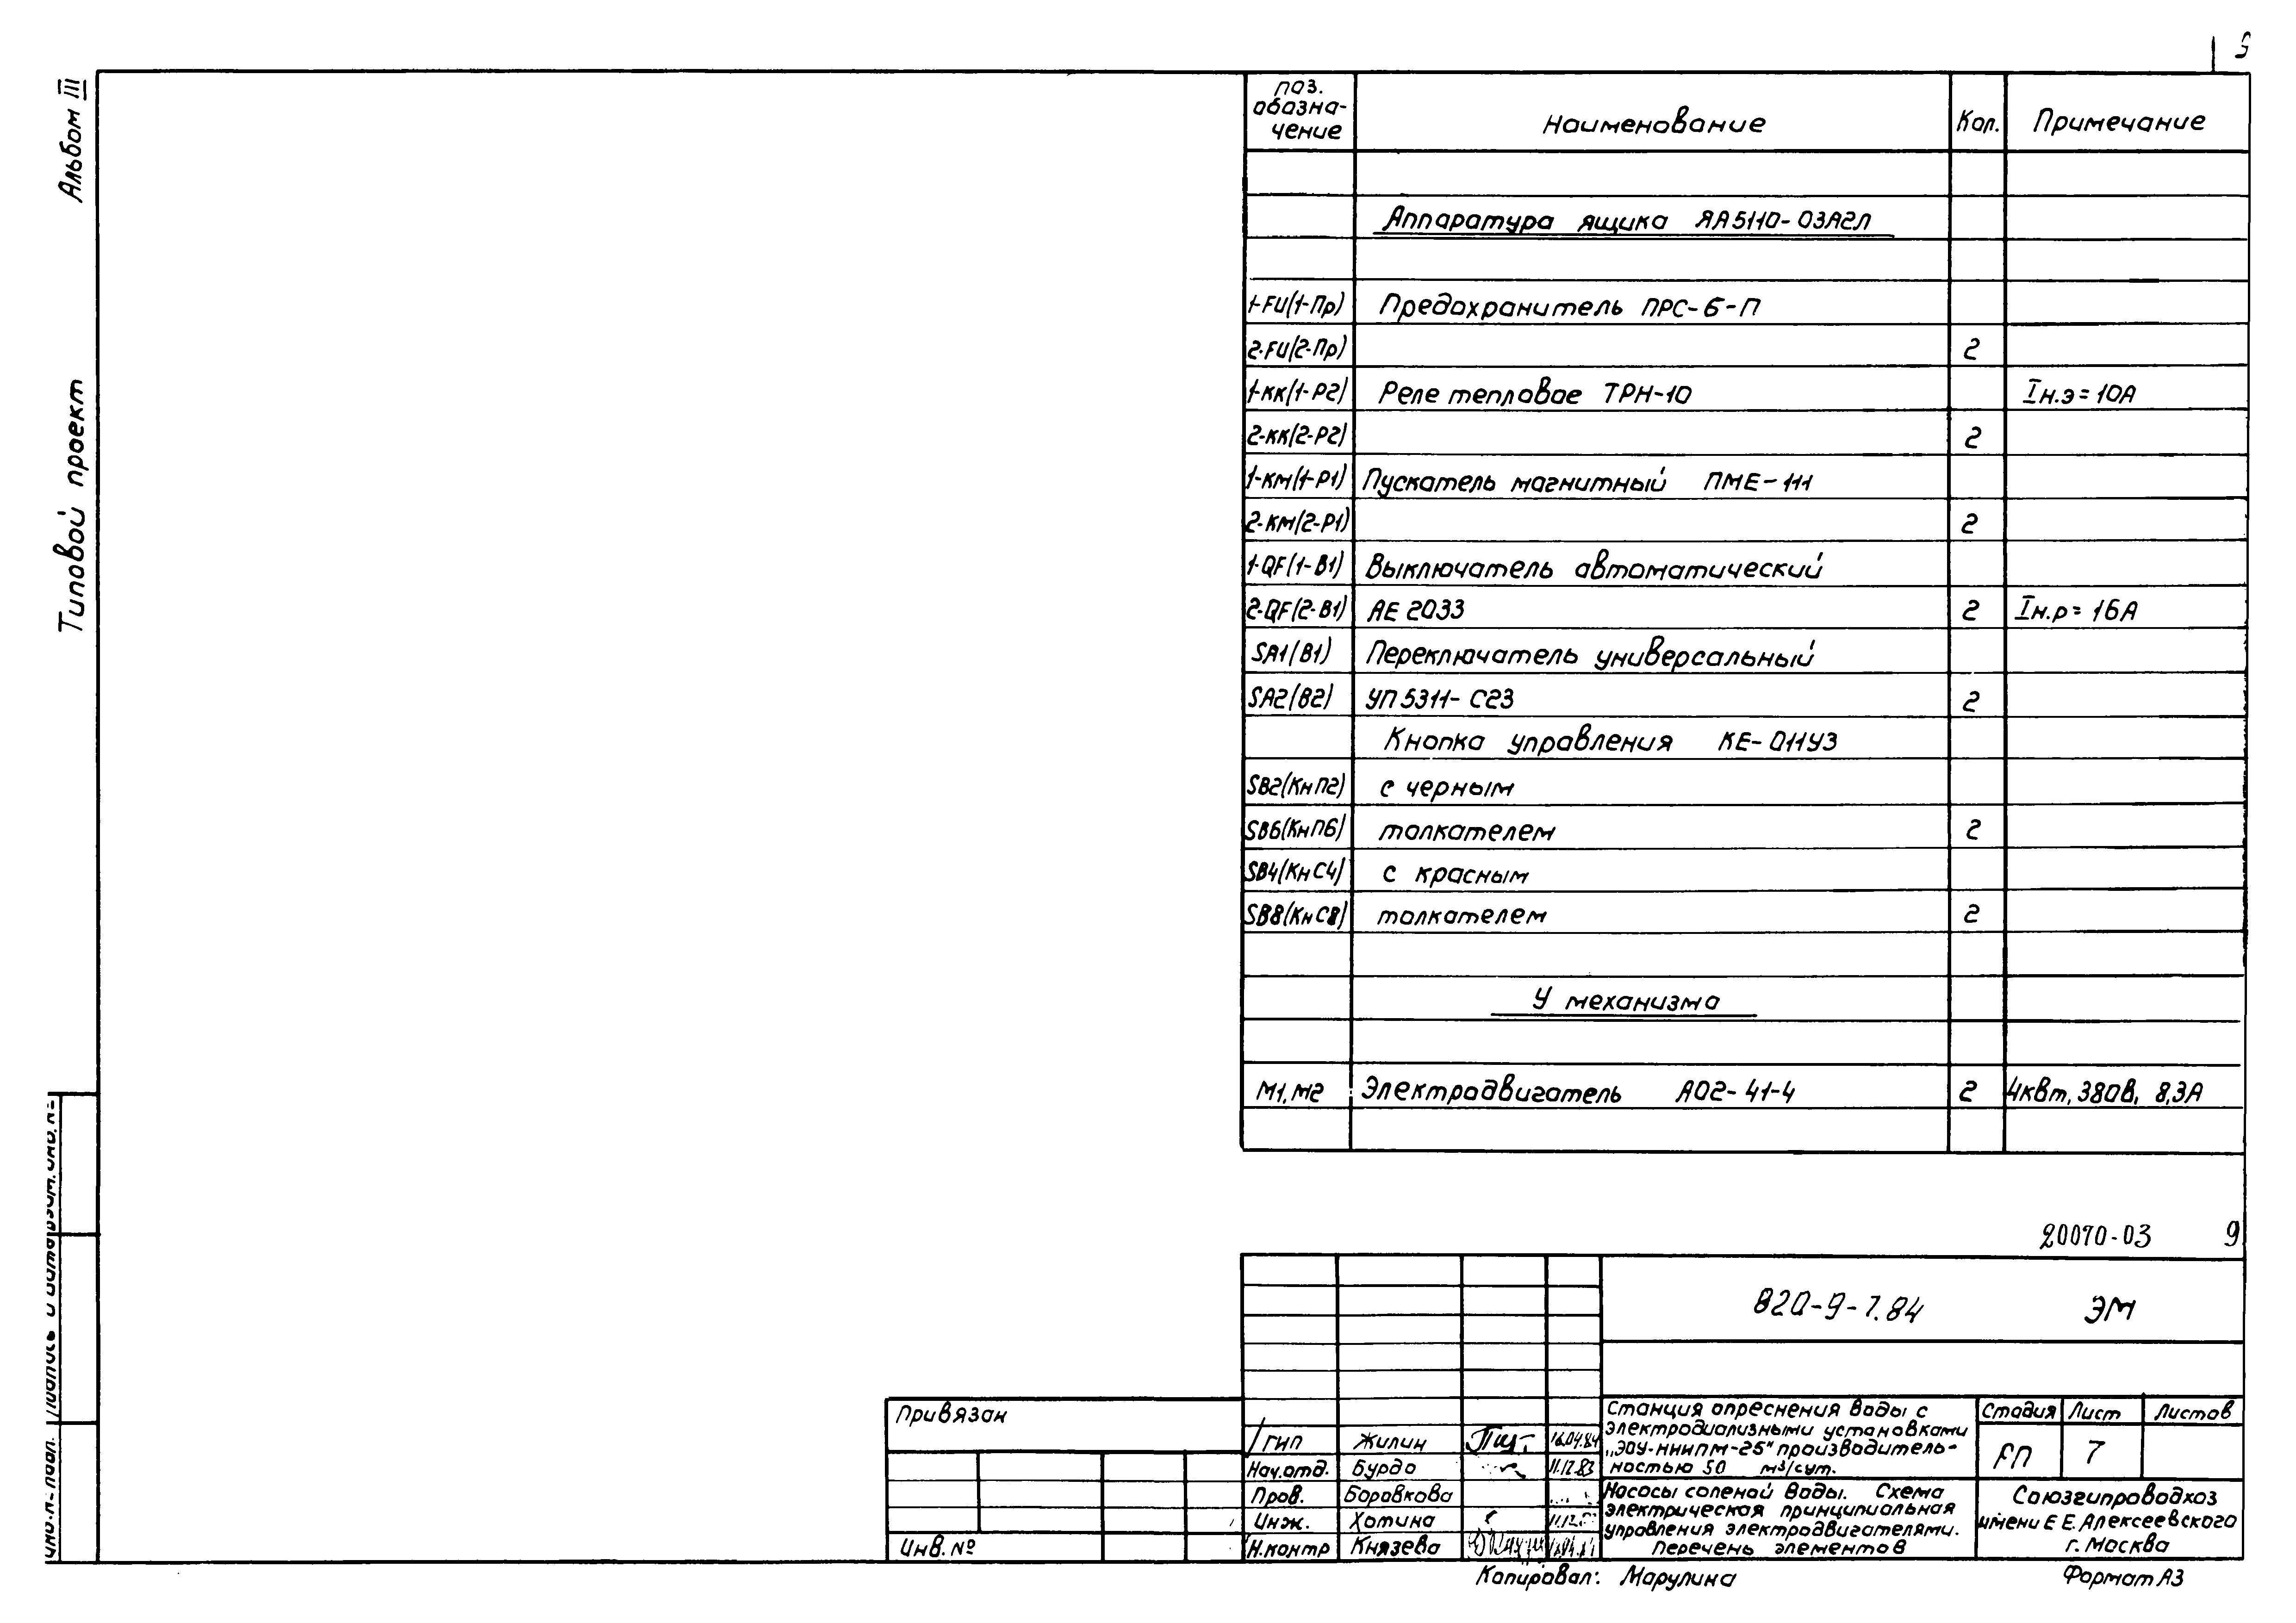 9
Альбом III
Типовой проект
Поз. обозна-чение Наименование Кол. Примечание
Аппаратура ящика ЯА5110-03А2Л
1-FU(1-Пр) Предохранитель ПРС-6-П
2-FU(2-Пр) 2
1-КК(1-Р2) Реле тепловое ТРН-10 Iн.э=10А
2-КК(2-Р2) 2
1-КМ(1-Р1) Пускатель магнитный ПМЕ-111
2-КМ(2-Р1) 2
1-QF(1-В1) Выключатель автоматический
2-QF(2-В1) АЕ 2033 2 Iн.р=16А
SA1(В1) Переключатель универсальный
SA2(В2) УП5311-С23 2
Кнопка управления КЕ-011У3
SB2(КнП2) с черным
SB6(КнП6) толкателем 2
SB4(КнС4) с красным
SB8(КнС8) толкателем 2
У механизма
М1, М2 Электродвигатель АО2-41-4 2 4кВт, 380В, 8,3А
20070-03 9
820-9-7.84 ЭМ
Привязан
Инв. №
ГИП Жилин 16.04.84
Нач.отд. Бурдо 11.12.83
Пров. Боровкова
Инж. Хотина
Н.контр Князева
Станция опреснения воды с
электродиализными установками
„ЭОУ-НИИПМ-25" производитель-
ностью 50 м³/сут.
Стадия Лист Листов
РП 7
Насосы соленой воды. Схема
электрическая принципиальная
управления электродвигателями.
Перечень элементов
Союзгипроводхоз
имени Е.Е. Алексеевского
г. Москва
Копировал: Марулина
Формат А3